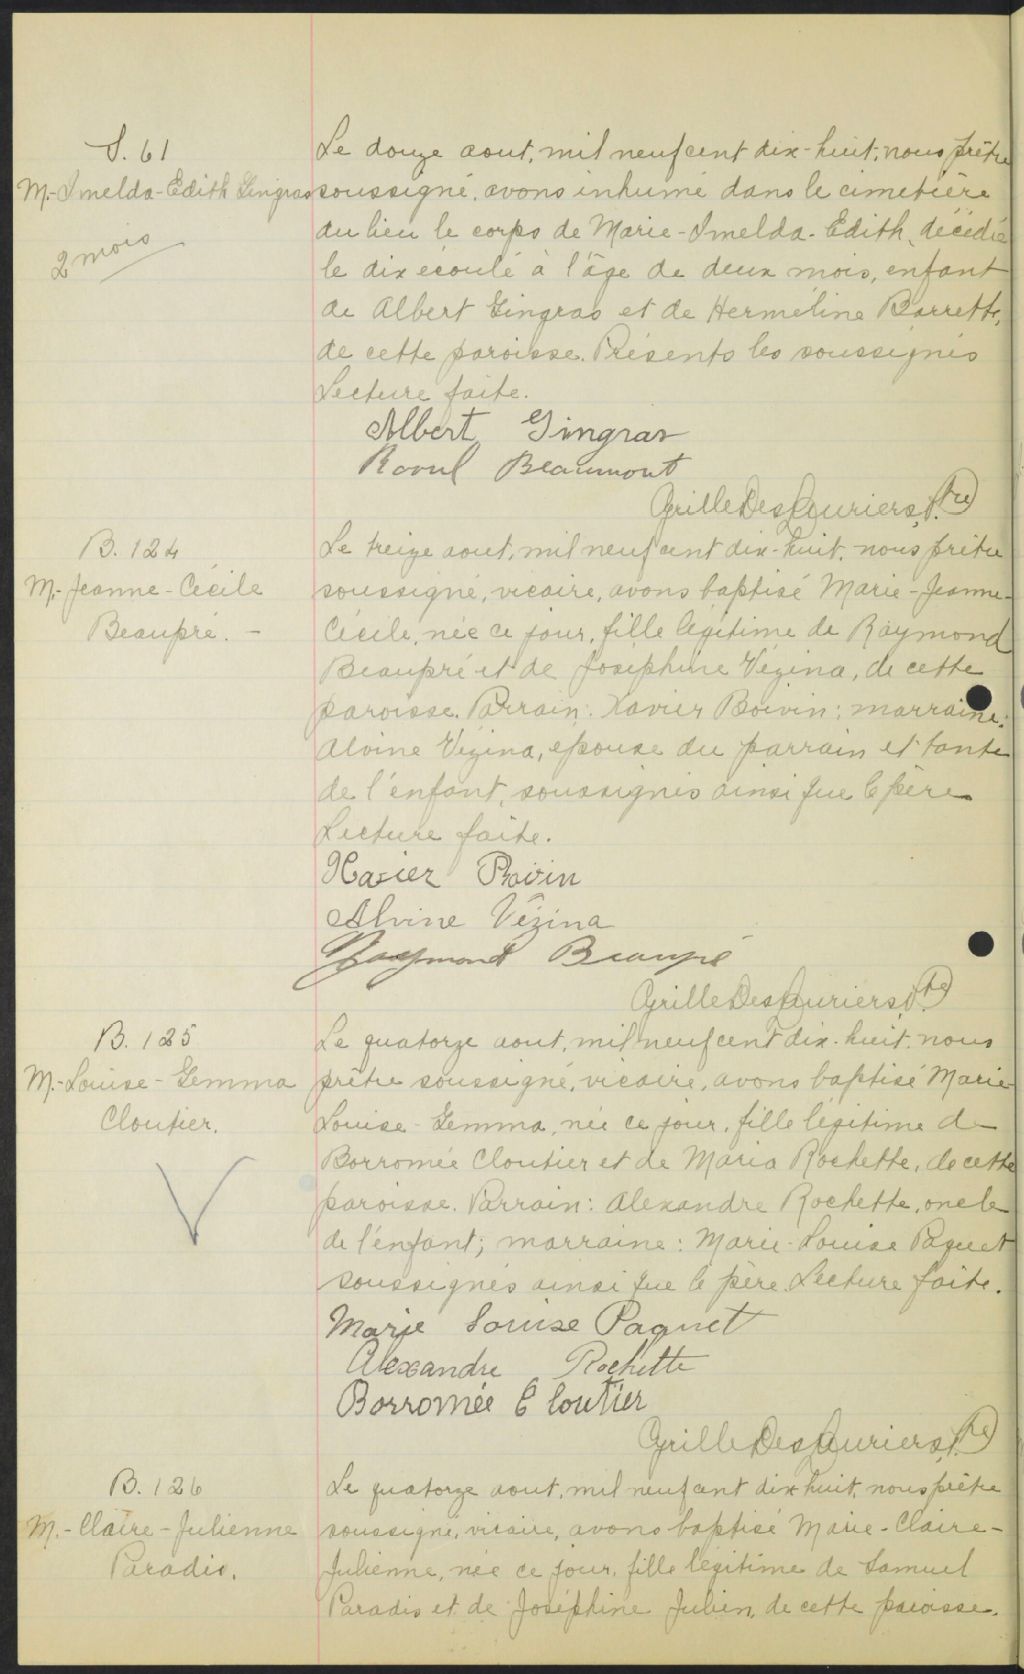 S. 61
M.-Imelda-Edith Gingras
2 mois
Le douze aout, mil neuf cent dix-huit, nous prêtre
soussigné, avons inhumé dans le cimetière
du lieu le corps de Marie-Imelda-Edith, décédée
le dix écoulé à l'âge de deux mois, enfant
de Albert Gingras et de Herméline Barrette,
de cette paroisse. Présents les soussignés
Lecture faite.
Albert Gingras
Raoul Beaumont
Cyrille DesLauriers, ptre
B. 124
M.-Jeanne-Cécile
Beaupré. -
Le treize aout, mil neuf cent dix-huit, nous prêtre
soussigné, vicaire, avons baptisé Marie-Jeanne-
Cécile, née ce jour, fille légitime de Raymond
Beaupré et de Joséphine Vézina, de cette
paroisse. Parrain: Xavier Boivin; marraine:
Alvine Vézina, épouse du parrain et tante
de l'enfant, soussignés ainsi que le père
Lecture faite.
Xavier Boivin
Alvine Vézina
Raymond Beaupré
Cyrille DesLauriers, ptre
B. 125
M.-Louise-Gemma
Cloutier.
Le quatorze aout, mil neuf cent dix-huit, nous
prêtre soussigné, vicaire, avons baptisé Marie-
Louise-Gemma, née ce jour, fille légitime de
Borromée Cloutier et de Maria Rochette, de cette
paroisse. Parrain: Alexandre Rochette, oncle
de l'enfant; marraine: Marie-Louise Paquet
soussignés ainsi que le père. Lecture faite.
Marie Louise Paquet
Alexandre Rochette
Borromée Cloutier
Cyrille DesLauriers, ptre
B. 126
M.-Claire-Julienne
Paradis.
Le quatorze aout, mil neuf cent dix-huit, nous prêtre
soussigné, vicaire, avons baptisé Marie-Claire-
Julienne, née ce jour, fille légitime de Samuel
Paradis et de Joséphine Julien, de cette paroisse.